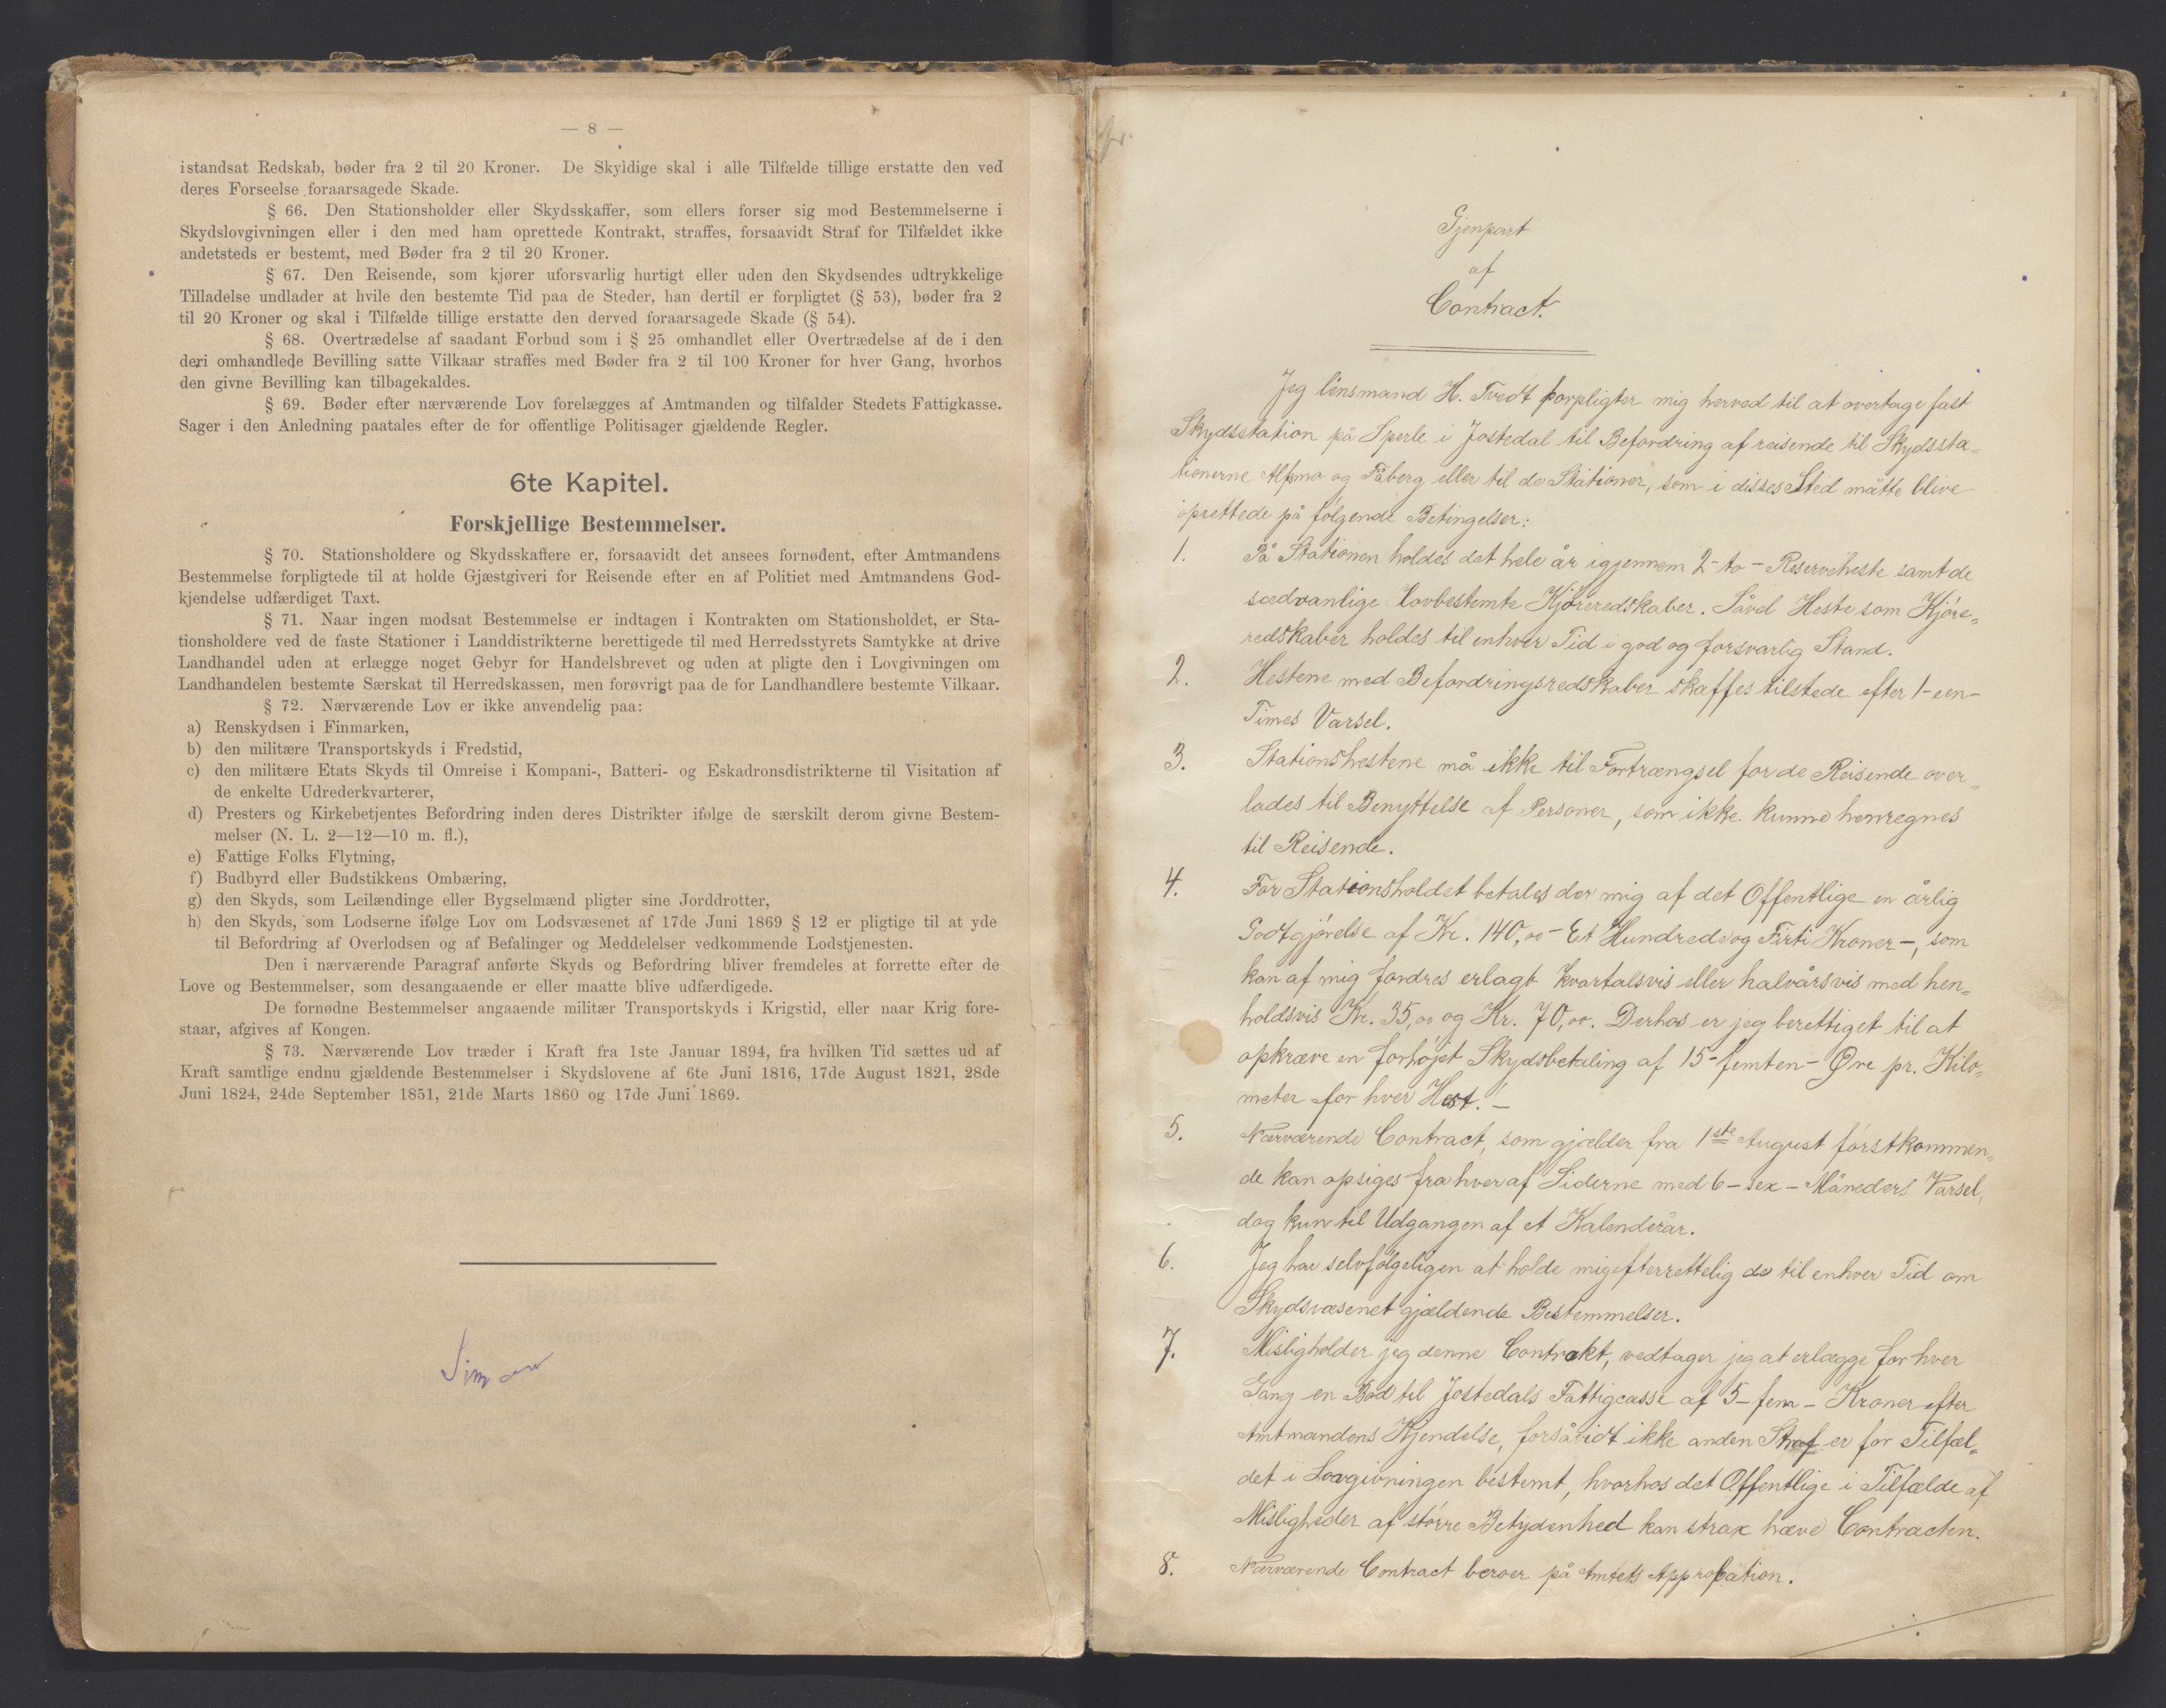 — 8 —
istandsat Redskab, bøder fra 2 til 20 Kroner. De Skyldige skal i alle Tilfælde tillige erstatte den ved
deres Forseelse foraarsagede Skade.
§ 66. Den Stationsholder eller Skydsskaffer, som ellers forser sig mod Bestemmelserne i
Skydslovgivningen eller i den med ham oprettede Kontrakt, straffes, forsaavidt Straf for Tilfældet ikke
andetsteds er bestemt, med Bøder fra 2 til 20 Kroner.
§ 67. Den Reisende, som kjører uforsvarlig hurtigt eller uden den Skydsendes udtrykkelige
Tilladelse undlader at hvile den bestemte Tid paa de Steder, han dertil er forpligtet (§ 53), bøder fra 2
til 20 Kroner og skal i Tilfælde tillige erstatte den derved foraarsagede Skade (§ 54).
§ 68. Overtrædelse af saadant Forbud som i § 25 omhandlet eller Overtrædelse af de i den
deri omhandlede Bevilling satte Vilkaar straffes med Bøder fra 2 til 100 Kroner for hver Gang, hvorhos
den givne Bevilling kan tilbagekaldes.
§ 69. Bøder efter nærværende Lov forelægges af Amtmanden og tilfalder Stedets Fattigkasse.
Sager i den Anledning paatales efter de for offentlige Politisager gjældende Regler.
6te Kapitel.
Forskjellige Bestemmelser.
§ 70. Stationsholdere og Skydsskaffere er, forsaavidt det ansees fornødent, efter Amtmandens
Bestemmelse forpligtede til at holde Gjæstgiveri for Reisende efter en af Politiet med Amtmandens God-
kjendelse udfærdiget Taxt.
§ 71. Naar ingen modsat Bestemmelse er indtagen i Kontrakten om Stationsholdet, er Sta-
tionsholdere ved de faste Stationer i Landdistrikterne berettigede til med Herredsstyrets Samtykke at drive
Landhandel uden at erlægge noget Gebyr for Handelsbrevet og uden at pligte den i Lovgivningen om
Landhandelen bestemte Særskat til Herredskassen, men forøvrigt paa de for Landhandlere bestemte Vilkaar.
§ 72. Nærværende Lov er ikke anvendelig paa:
a) Renskydsen i Finmarken,
b) den militære Transportskyds i Fredstid,
c) den militære Etats Skyds til Omreise i Kompani-, Batteri- og Eskadronsdistrikterne til Visitation af
de enkelte Udrederkvarterer,
d) Presters og Kirkebetjentes Befordring inden deres Distrikter ifølge de særskilt derom givne Bestem-
melser (N. L. 2—12—10 m. fl.),
e) Fattige Folks Flytning,
f) Budbyrd eller Budstikkens Ombæring,
g) den Skyds, som Leilændinge eller Bygselmænd pligter sine Jorddrotter,
h) den Skyds, som Lodserne ifølge Lov om Lodsvæsenet af 17de Juni 1869 § 12 er pligtige til at yde
til Befordring af Overlodsen og af Befalinger og Meddelelser vedkommende Lodstjenesten.
Den i nærværende Paragraf anførte Skyds og Befordring bliver fremdeles at forrette efter de
Love og Bestemmelser, som desangaaende er eller maatte blive udfærdigede.
De fornødne Bestemmelser angaaende militær Transportskyds i Krigstid, eller naar Krig fore-
staar, afgives af Kongen.
§ 73. Nærværende Lov træder i Kraft fra 1ste Januar 1894, fra hvilken Tid sættes ud af
Kraft samtlige endnu gjældende Bestemmelser i Skydslovene af 6te Juni 1816, 17de August 1821, 28de
Juni 1824, 24de September 1851, 21de Marts 1860 og 17de Juni 1869.
Gjenpart
af
Contract.
Jeg lensmand H. Tvedt forpligter mig herved til at overtage fast
Skydsstation på Sperle i Jostedal til Befordring af reisende til Skydssta=
tionerne Alsmo og Fåberg eller til de Stationer, som i disses Sted måtte blive
oprettede på følgende Betingelser:
1. På Stationen holdes det hele år igjennem 2-to- Reserveheste samt de
sædvanlige lovbestemte Kjøreredskaber. Såvel Heste som Kjøre=
redskaber holdes til enhver Tid i god og forsvarlig Stand.
2. Hestene med Befordringsredskaber skaffes tilstede efter 1-een-
Times Varsel.
3. Stationshestene må ikke til Fortrængsel for de Reisende over=
lades til Benyttelse af Personer, som ikke kunne henregnes
til Reisende.
4. For Stationsholdet betales der mig af det Offentlige en årlig
Godtgjørelse af Kr. 140,00 - Et Hundrede og Firti Kroner -, som
kan af mig fordres erlagt kvartalsvis eller halvårsvis med hen=
holdsvis Kr. 35,00 og Kr. 70,00. Derhos er jeg berettiget til at
opkræve en forhøjet Skydsbetaling af 15-femten- Øre pr. Kilo=
meter for hver Hest. -
5. Nærværende Contract, som gjælder fra 1ste August førstkommen=
de kan opsiges fra hver af Siderne med 6-sex-Måneders Varsel,
dog kun til Udgangen af et Kalenderår.
6. Jeg har selvfølgeligen at holde mig efterrettelig de til enhver Tid om
Skydsvæsenet gjældende Bestemmelser.
7. Misligholder jeg denne Contrakt, vedtager jeg at erlægge for hver
Gang en Bod til Jostedals Fattigcasse af 5-fem-Kroner efter
Amtmandens Kjendelse, forsåvidt ikke anden Straf er for Tilfæl=
det i Lovgivningen bestemt, hvorhos det Offentlige i Tilfælde af
Misligheder af større Betydenhed kan strax hæve Contracten.
8. Nærværende Contract beroer på Amtets Approbation.